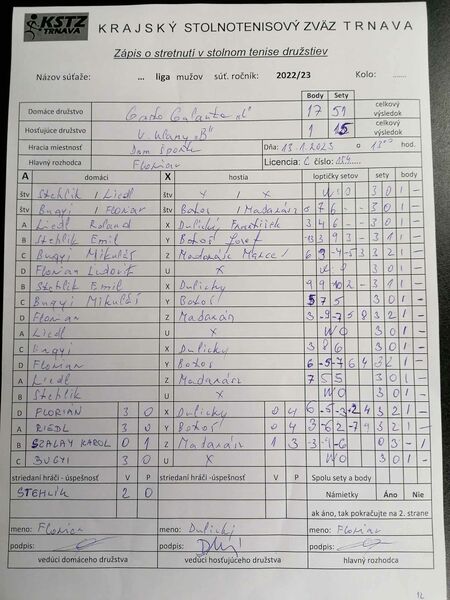 KSTZ TRNAVA KRAJSKÝ STOLNOTENISOVÝ ZVÄZ TRNAVA
Zápis o stretnutí v stolnom tenise družstiev
Názov súťaže: ... liga mužov súť. ročník: 2022/23 Kolo: ........
Body Sety
Domáce družstvo Galanta "C" 17 51 celkový výsledok
Hosťujúce družstvo V. Uľany "B" 1 15 celkový výsledok
Hracia miestnosť Dom športu Dňa: 13.1.2023 o hod.
Hlavný rozhodca Florian Licencia: C číslo:
A domáci X hostia loptičky setov sety body
štv Stehlik / Riedl štv X / X WO 3 0 1 -
štv Bugyi / Florian štv Bohoš / Madarász 6 7 6 - - 3 0 1 -
A Riedl Roland X Dulický František 3 4 6 - - 3 0 1 -
B Stehlik Emil Y Bohoš Jozef 3 1 1 -
C Bugyi Mikuláš Z Madarász 3 2 1 -
D Florian Ľudovít U X 3 0 1 -
B Stehlik Emil X Dulický 9 9 -10 2 - 3 1 1 -
C Bugyi Mikuláš Y Bohoš 5 7 5 3 0 1 -
D Florian Z Madarász 3 -9 -7 5 8 3 2 1 -
A Riedl U X WO 3 0 1 -
C Bugyi X Dulický 3 8 6 3 0 1 -
D Florian Y Bohoš 6 -5 -7 6 4 3 2 1 -
A Riedl Z Madarász 7 5 5 3 0 1 -
B Stehlik U X WO 3 0 1 -
D FLORIAN 3 0 X Dulický 0 4 6 -5 -3 3 2 1 -
A RIEDL 3 0 Y Bohoš 0 4 3 -6 2 -7 9 3 2 1 -
B SZALAY KAROL 0 1 Z Madarász 1 3 -3 -4 -6 0 3 - 1
C BUGYI 3 0 U X WO 3 0 1 -
striedaní hráči-úspešnosť V P striedaní hráči-úspešnosť V P Spolu sety a body
STEHLÍK 2 0 Námietky Áno Nie
ak áno, tak pokračujte na 2. strane
meno: Florian meno: Dulický meno: Florian
podpis: podpis: podpis:
vedúci domáceho družstva vedúci hosťujúceho družstva hlavný rozhodca